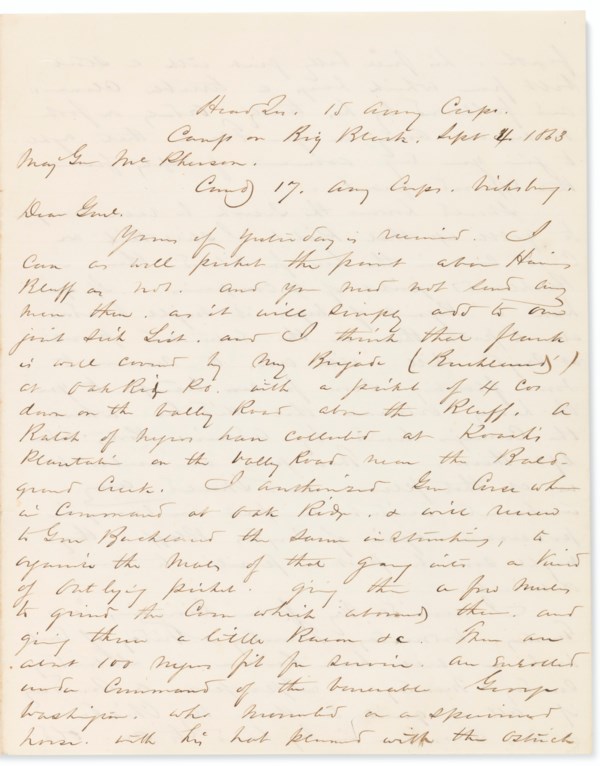 Head Qrs. 15 Army Corps.
Camp on Big Black. Sept 4 1863
Maj Gen McPherson.
Comdg 17. Army Corps. Vicksburg.
Dear Genl.
Yours of yesterday is received. I
can as well picket the point above Haines
Bluff as not. and you need not send any
men there. as it will simply add to our
joint Sick List. and I think that flank
is well covered by my Brigade (Bucklands)
at Oak Ridge P.O. with a picket of 4 Cos
down on the Valley Road above the Bluff. A
Batch of negros have collected at Roach's
Plantation on the Valley Road near the Bald-
ground Creek. I authorized Gen Corse when
in Command at Oak Ridge. & will renew
to Gen Buckland the same instructions, to
organize the males of that gang into a kind
of Outlying picket. giving them a few mules
to grind the Corn which abounds there. and
giving them a little Bacon &c. There are
about 100 negros fit for service. are Enrolled
under Command of the venerable George
Washington. who mounted on a spavined
horse. with his hat plumed with the Ostrich